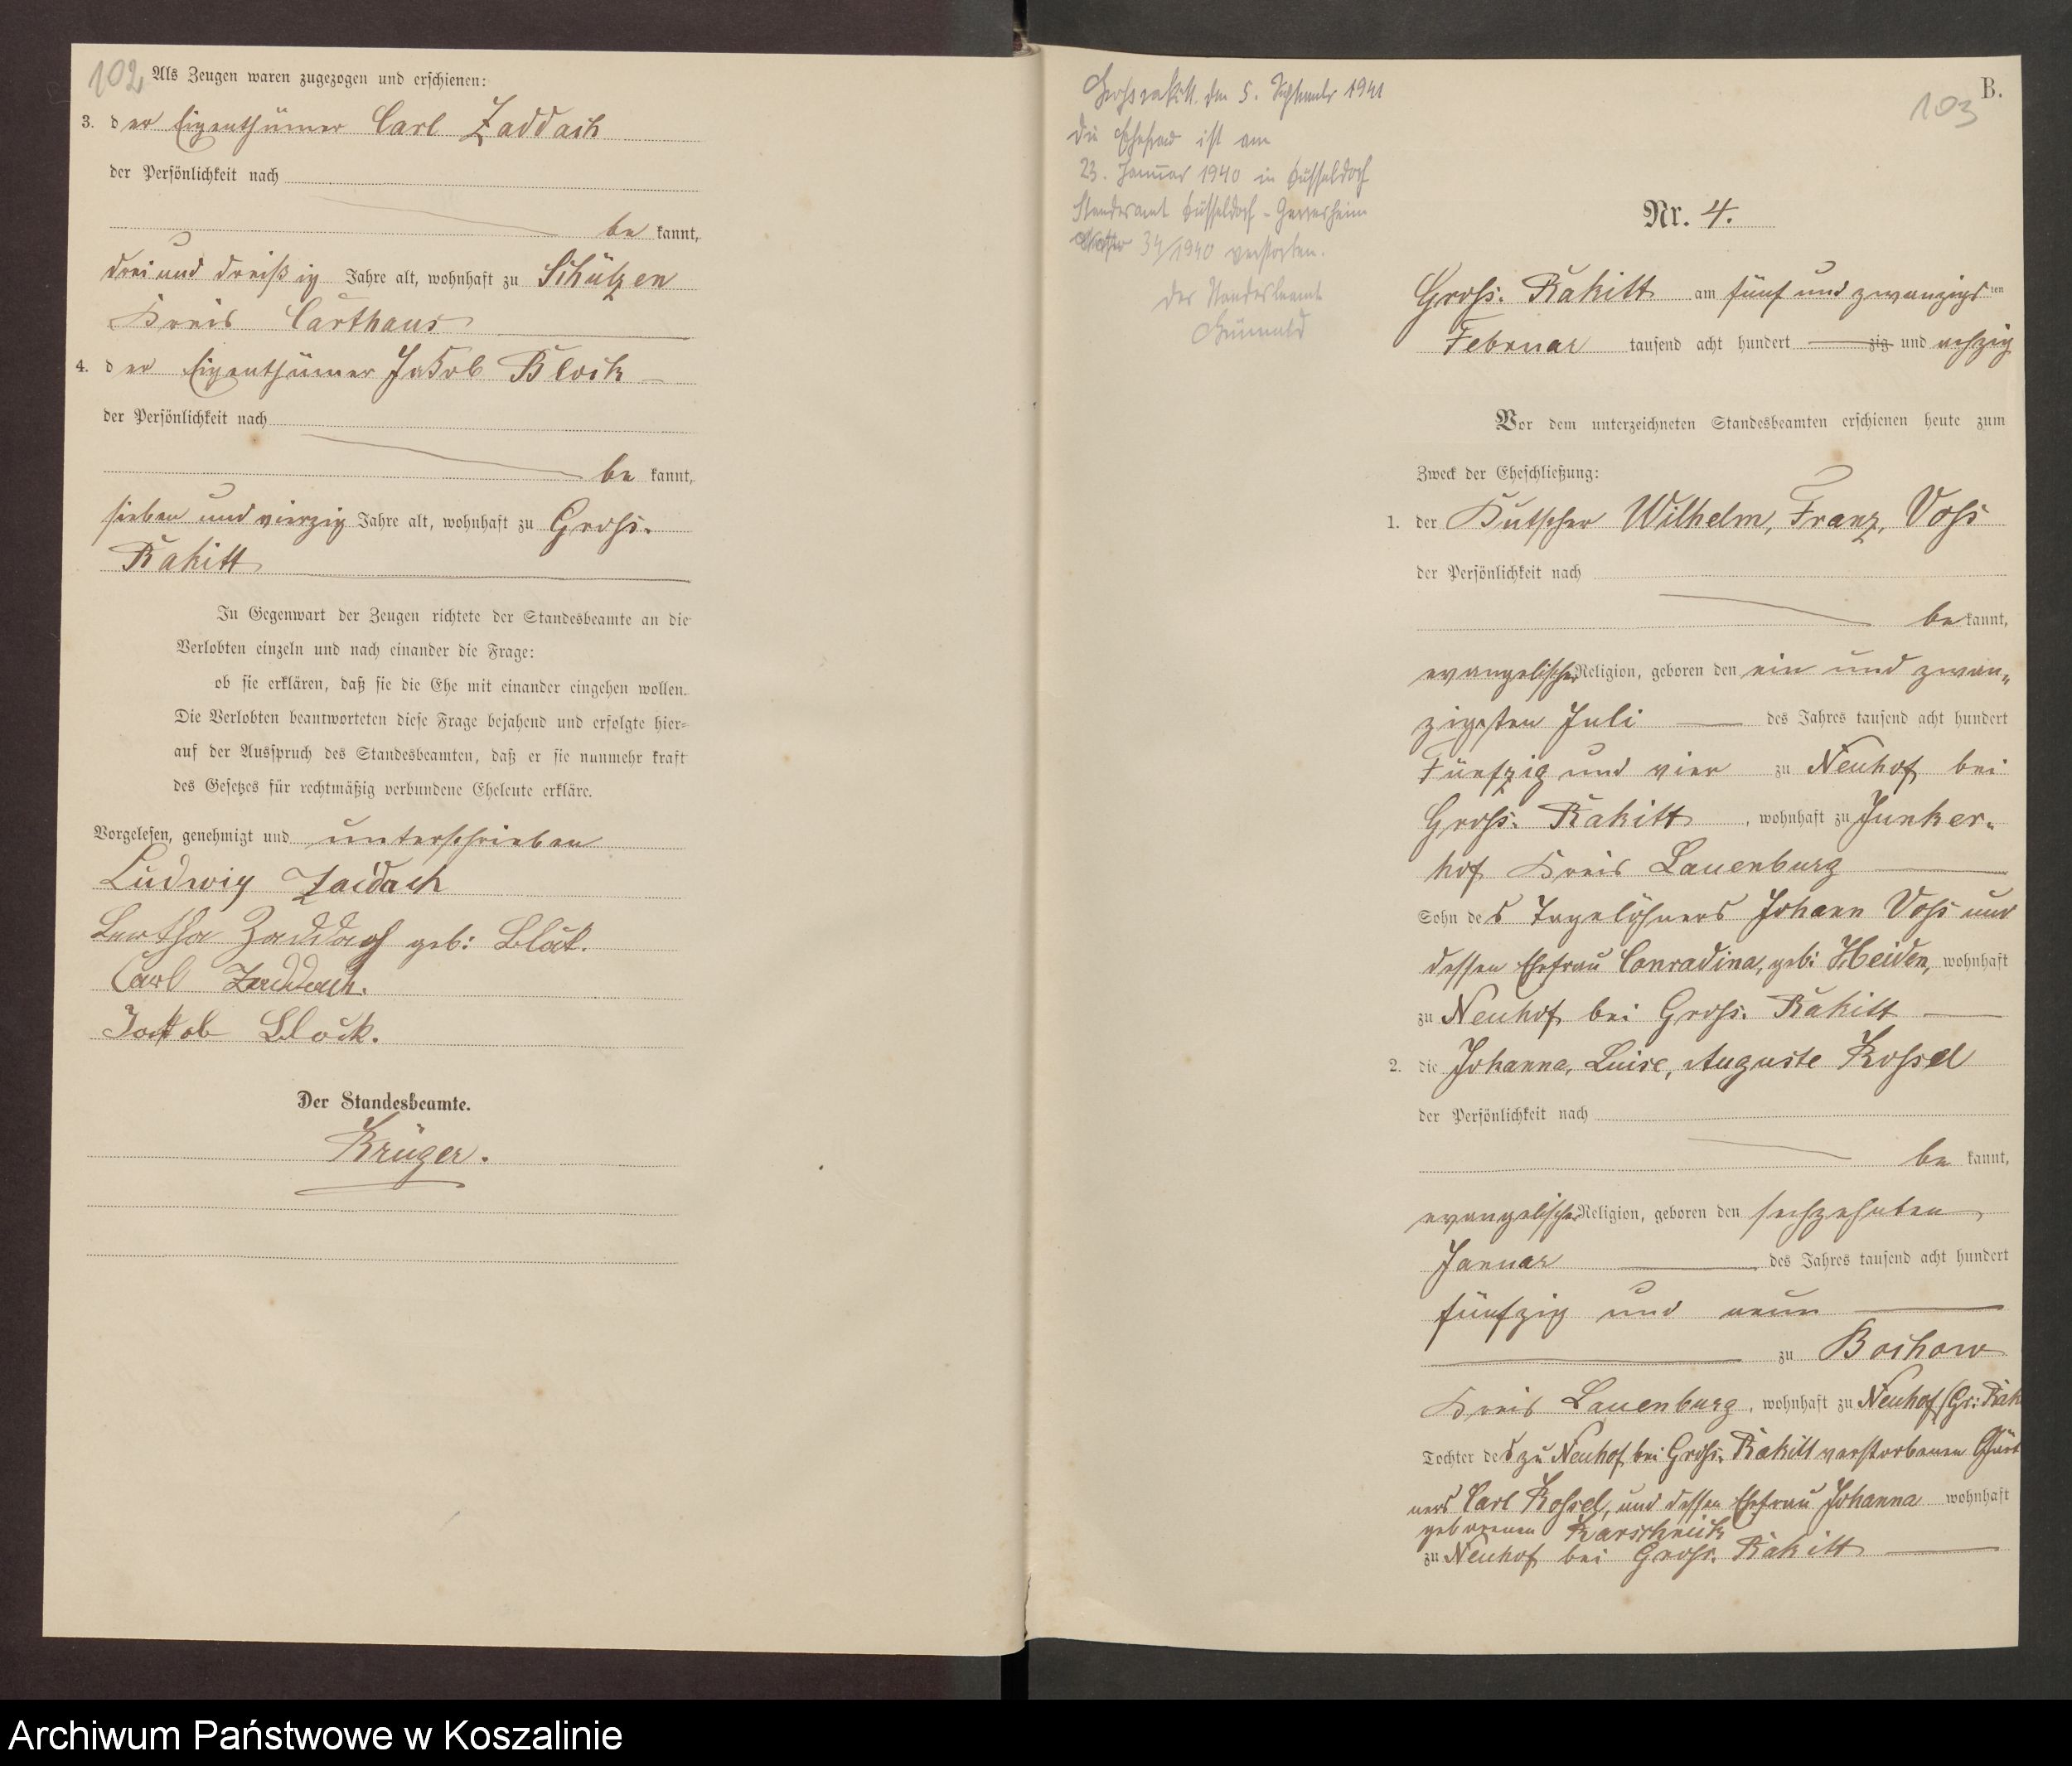 102
Als Zeugen waren zugezogen und erschienen:
3. der Eigenthümer Carl Zaddach
der Persönlichkeit nach
bekannt,
drei und dreißig Jahre alt, wohnhaft zu Schülzen
Kreis Carthaus
4. der Eigenthümer Jakob Block
der Persönlichkeit nach
bekannt,
sieben und vierzig Jahre alt, wohnhaft zu Gross-
Rakitt
In Gegenwart der Zeugen richtete der Standesbeamte an die
Verlobten einzeln und nach einander die Frage:
ob sie erklären, daß sie die Ehe mit einander eingehen wollen.
Die Verlobten beantworteten diese Frage bejahend und erfolgte hier-
auf der Ausspruch des Standesbeamten, daß er sie nunmehr kraft
des Gesetzes für rechtmäßig verbundene Eheleute erkläre.
Vorgelesen, genehmigt und unterschrieben
Ludwig Zaddach
Bertha Zaddach geb: Block.
Carl Zaddach.
Jakob Block.
Der Standesbeamte.
Krüger.
Grossrakitt, den 5. September 1941
Die Ehefrau ist am
23. Januar 1940 in Düsseldorf
Standesamt Düsseldorf-Gerresheim
34/1940 verstorben.
Der Standesbeamte
Grünwald
B.
103
Nr. 4.
Gross-Rakitt am fünf und zwanzigsten
Februar tausend acht hundert zig und achzig
Vor dem unterzeichneten Standesbeamten erschienen heute zum
Zweck der Eheschließung:
1. der Kutscher Wilhelm, Franz, Voss
der Persönlichkeit nach
bekannt,
evangelischer Religion, geboren den ein und zwan-
zigsten Juli des Jahres tausend acht hundert
Fünfzig und vier zu Neuhof bei
Gross-Rakitt, wohnhaft zu Junker-
hof Kreis Lauenburg
Sohn des Tagelöhners Johann Voss und
dessen Ehefrau Conradina, geb: Heiden, wohnhaft
zu Neuhof bei Gross-Rakitt
2. die Johanna, Luise, Auguste Kossel
der Persönlichkeit nach
bekannt,
evangelischer Religion, geboren den sechzehnten
Januar des Jahres tausend acht hundert
fünfzig und neun
zu Bochow
Kreis Lauenburg, wohnhaft zu Neuhof (Gr: Rak
Tochter des zu Neuhof bei Gross-Rakitt verstorbenen Gärt
ners Carl Kossel, und dessen Ehefrau Johanna wohnhaft
geborenen Karschnick
zu Neuhof bei Gross-Rakitt
Archiwum Państwowe w Koszalinie